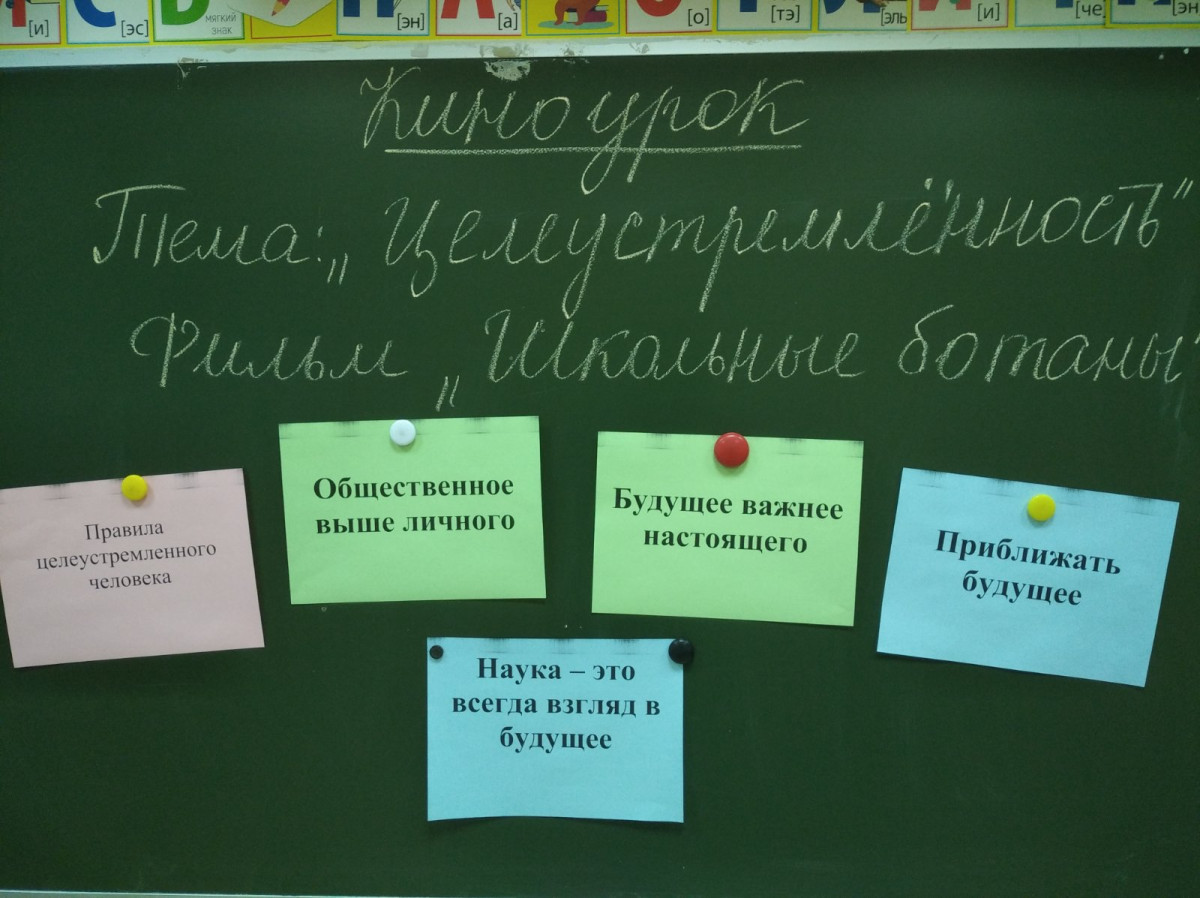 [и] [эс] мягкий знак [эн] [а] [о] [тэ] [эль] [и]
Киноурок
Тема: „Целеустремлённость"
Фильм „Школьные ботаны"
Правила
целеустремленного
человека
Общественное
выше личного
Будущее важнее
настоящего
Приближать
будущее
Наука – это
всегда взгляд в
будущее